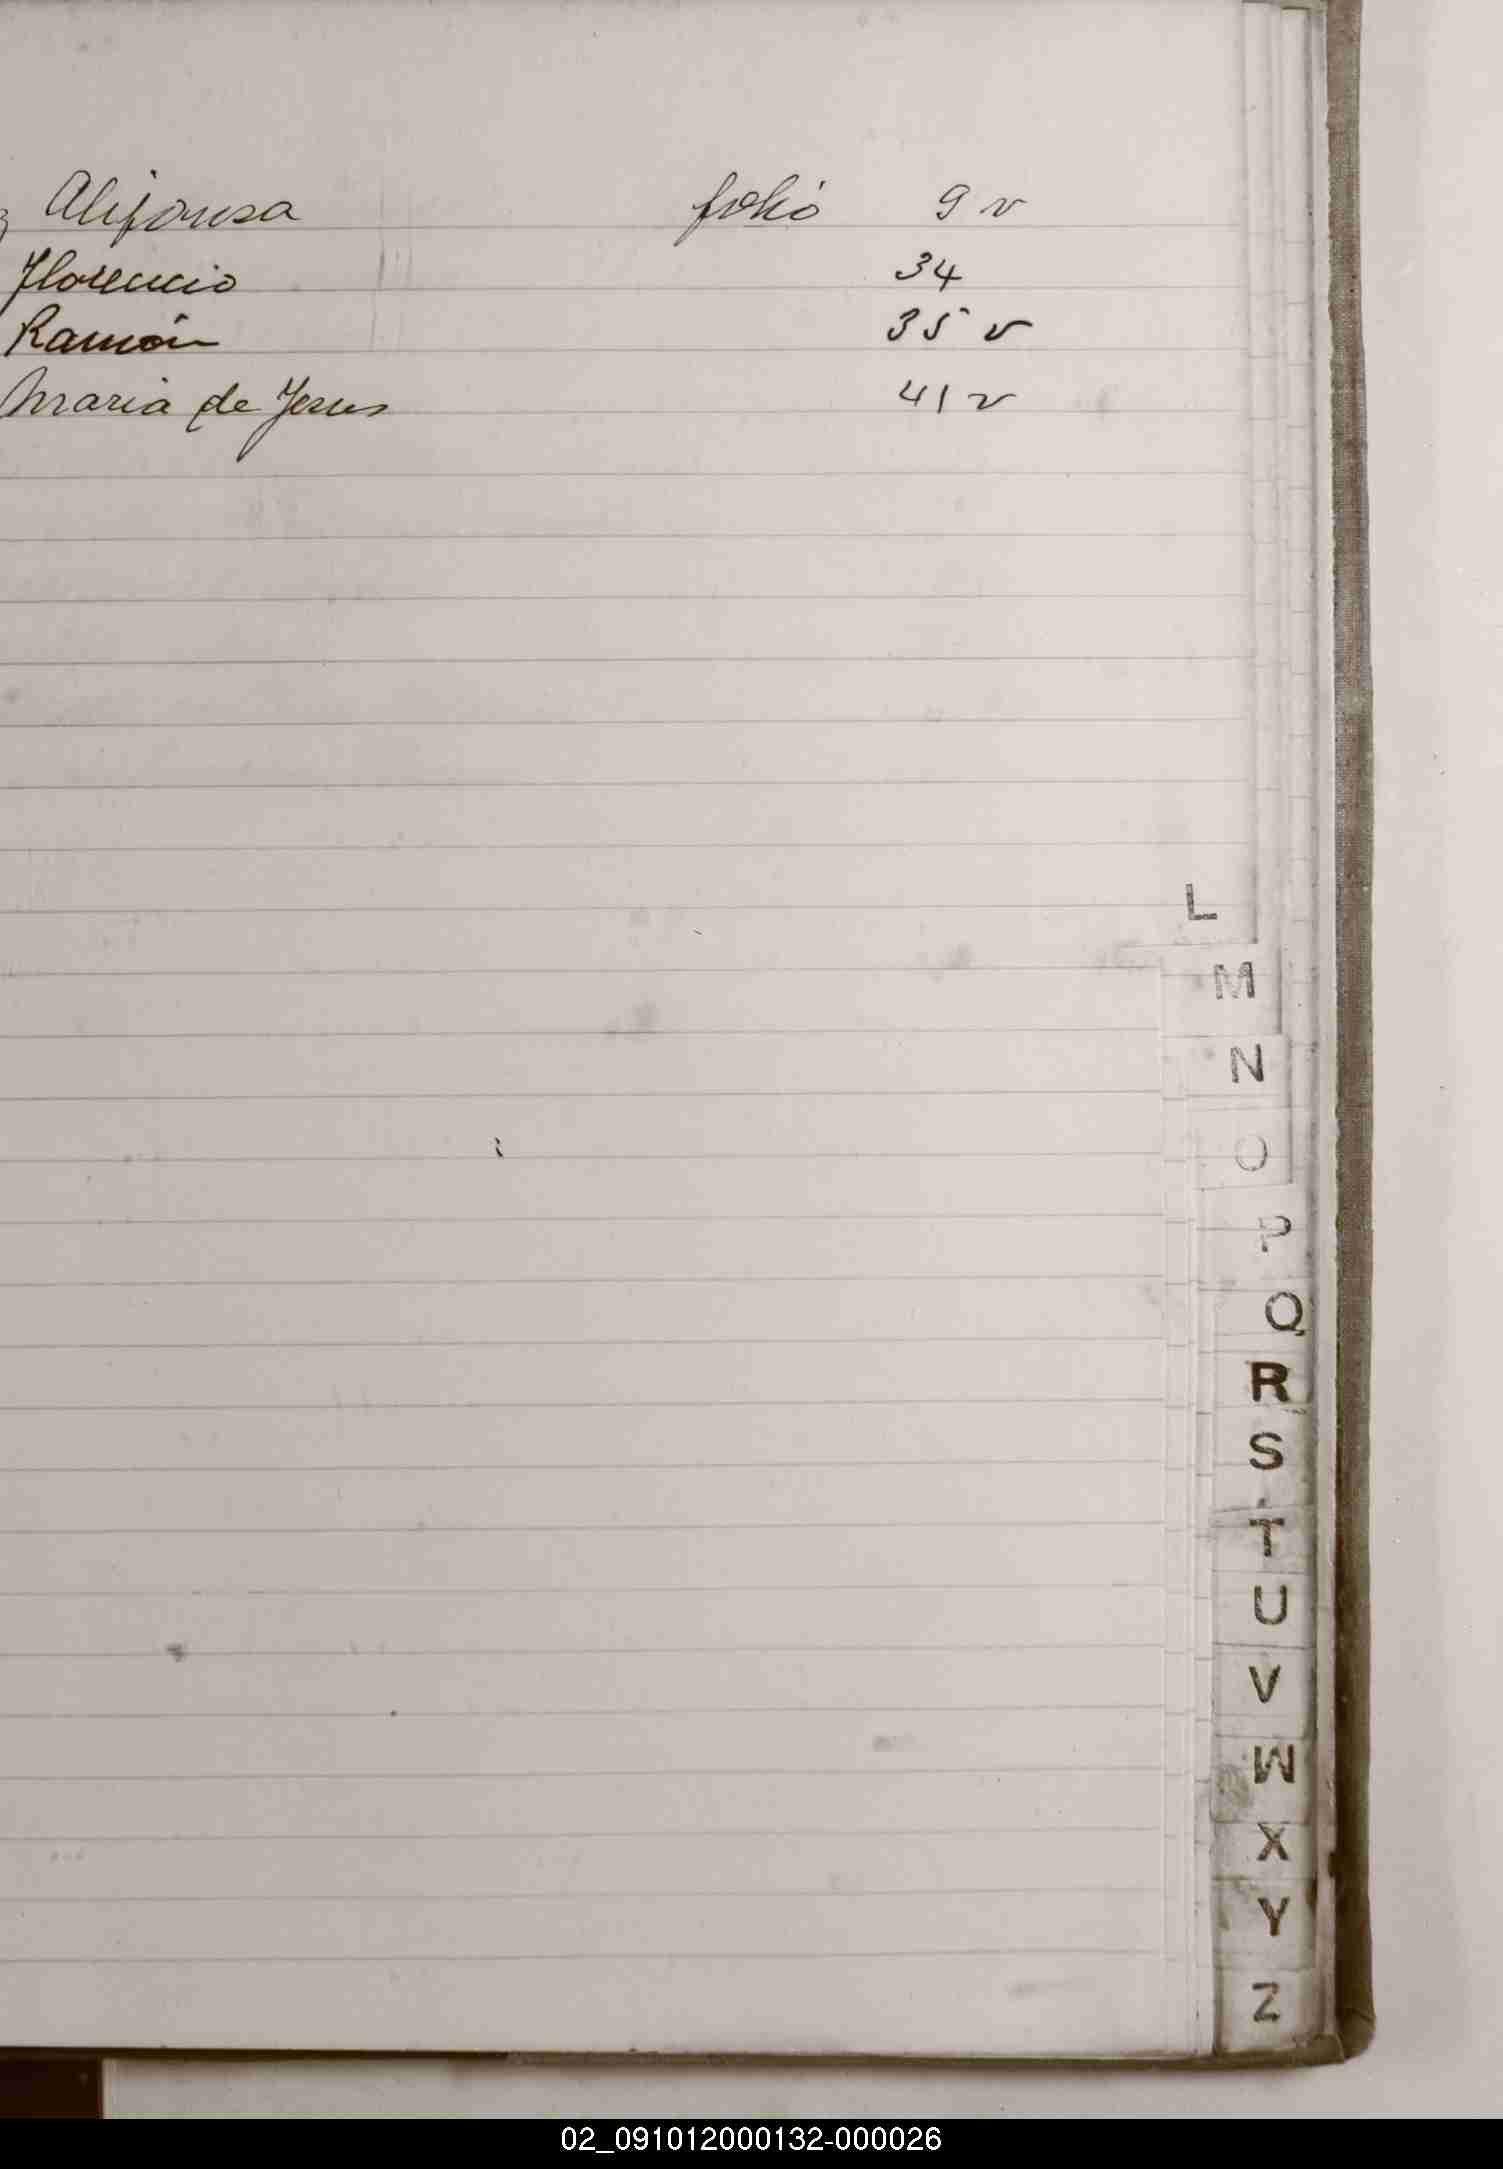 z Alifonsa folio 9 v
Florencio 34
Ramón 35 v
Maria de Jesus 41 v
L
M
N
O
P
Q
R
S
T
U
V
W
X
Y
Z
02_091012000132-000026